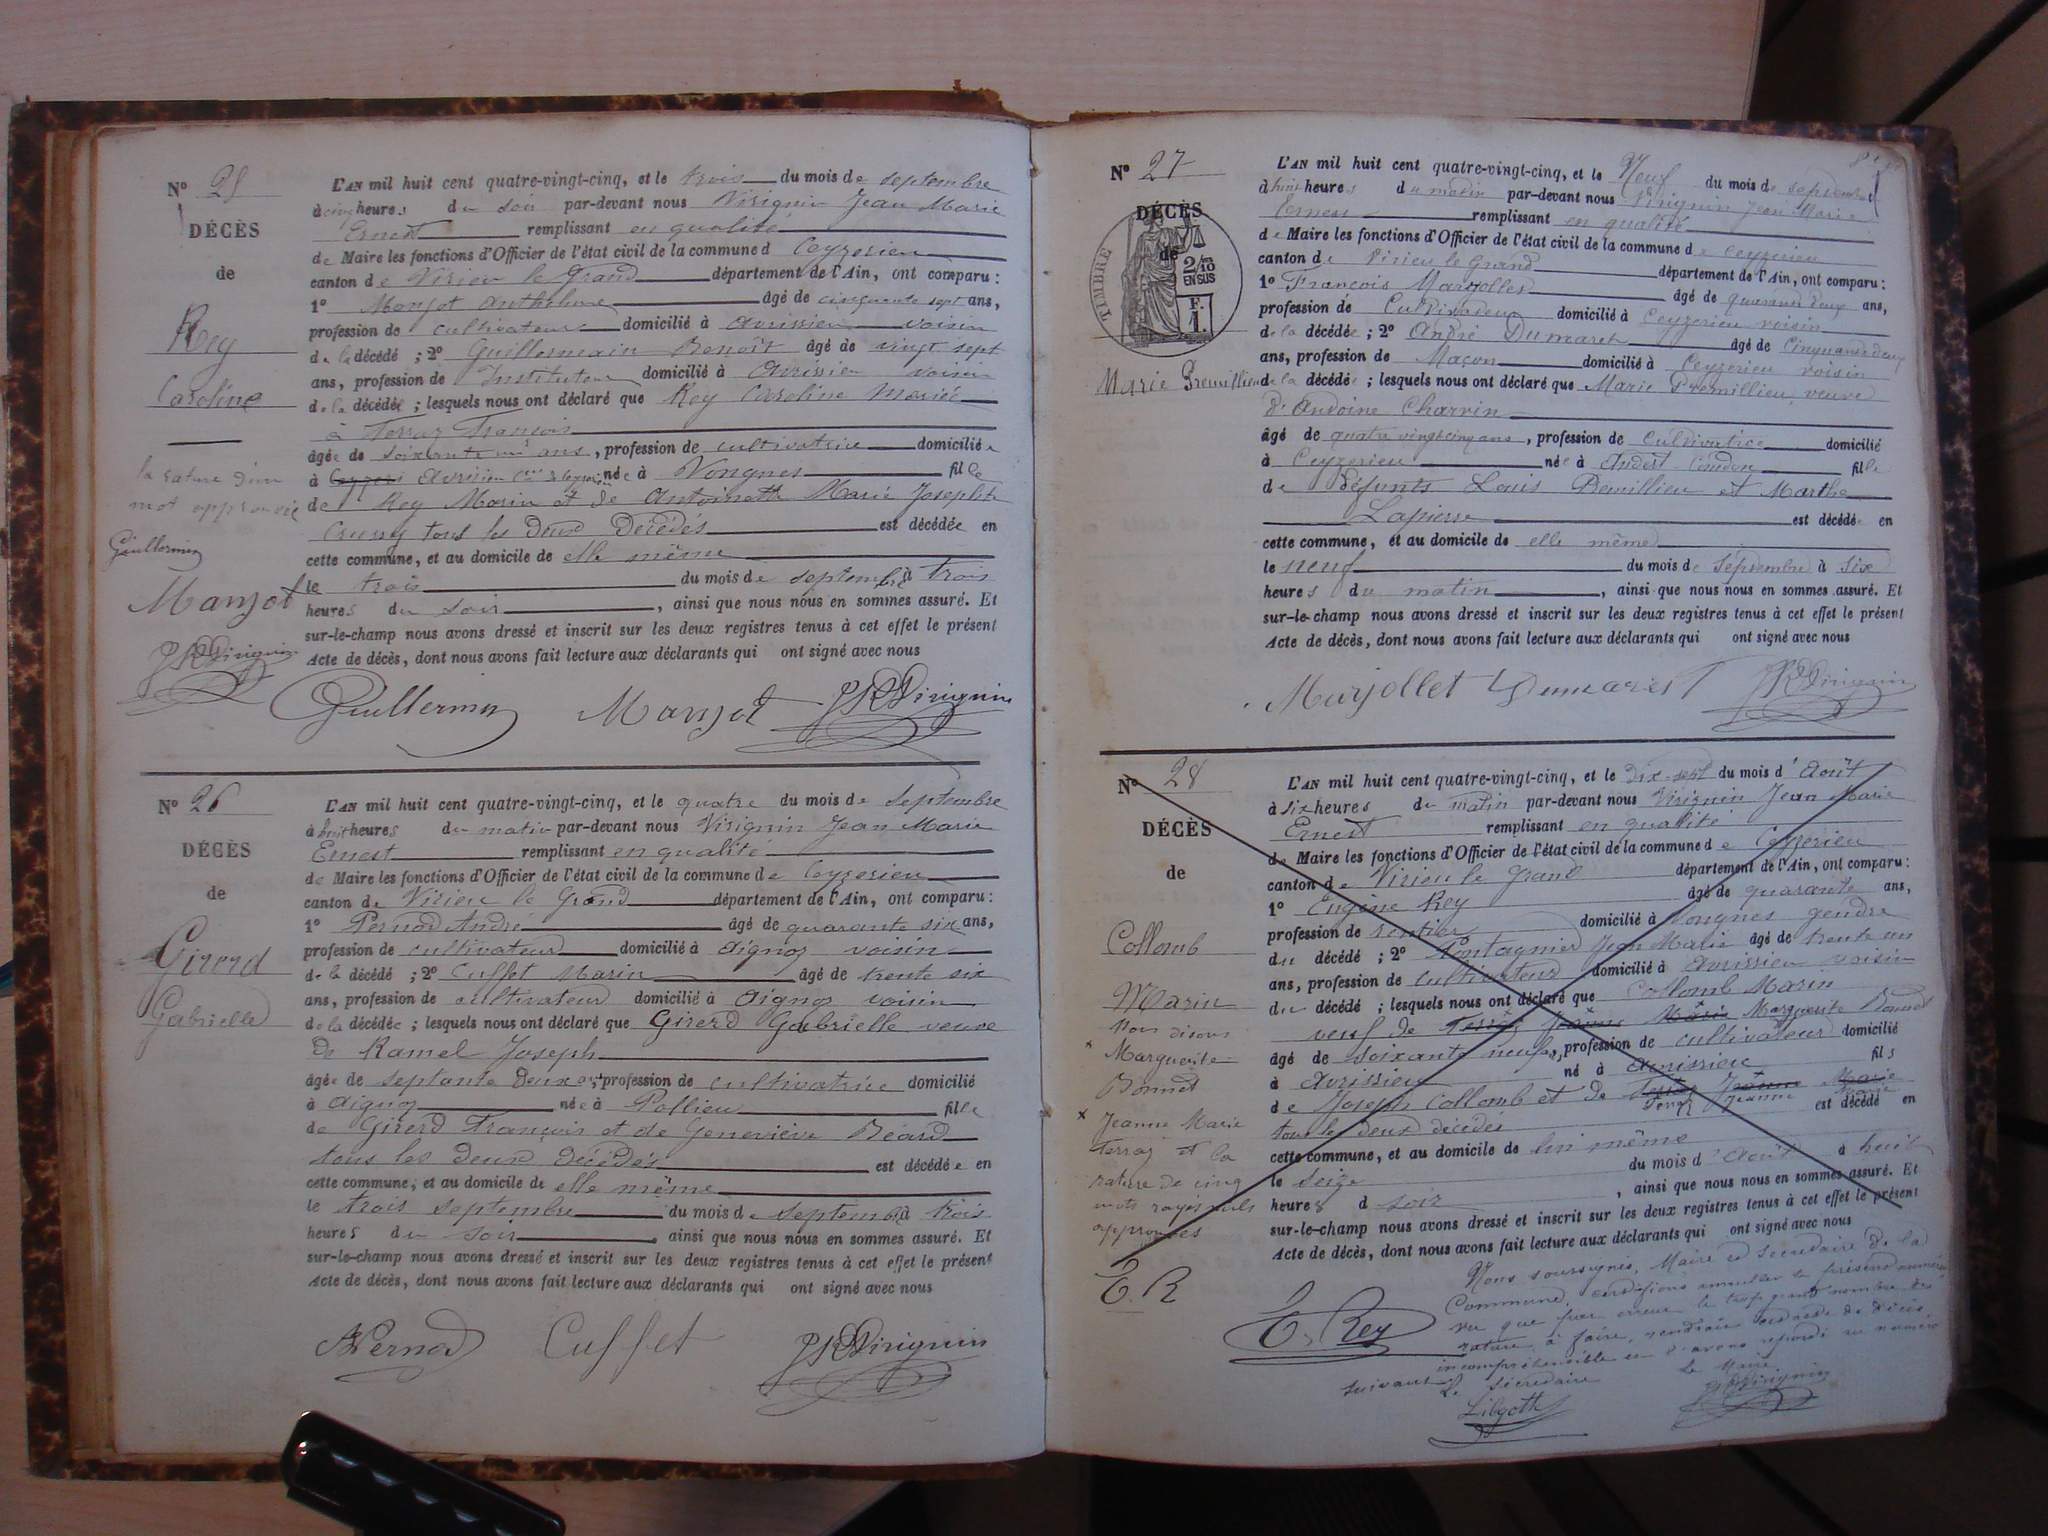 Nº 25
DÉCÈS
de
Rey
Caroline
la rature d'un
mot approuvée
Guillermin
Manjot
JR Virignin
L'AN mil huit cent quatre-vingt-cinq, et le trois du mois de septembre
à cinq heures du soir par-devant nous Virignin Jean Marie
Ernest remplissant en qualité
de Maire les fonctions d'Officier de l'état civil de la commune d Ceyzerieu
canton de Virieu le Grand département de l'Ain, ont comparu :
1º Manjot Anthelme âgé de cinquante sept ans,
profession de cultivateur domicilié à Avrissieu voisin
de la décédé ; 2º Guillermain Benoît âgé de vingt sept
ans, profession de Instituteur domicilié à Avrissieu voisin
de la décédée ; lesquels nous ont déclaré que Rey Caroline Mariée
à Terraz François
âgée de soixante un ans, profession de cultivatrice domiciliée
à Avrissieu née à Vongnes fille
de Rey Marin et de Antoinette Marie Josephte
tous les deux Décédés est décédée en
cette commune, et au domicile de elle même
le trois du mois de septembre à trois
heures du soir, ainsi que nous nous en sommes assuré. Et
sur-le-champ nous avons dressé et inscrit sur les deux registres tenus à cet effet le présent
Acte de décès, dont nous avons fait lecture aux déclarants qui ont signé avec nous
Guillermin Manjot JR Virignin
Nº 26
DÉCÈS
de
Girerd
Gabrielle
L'AN mil huit cent quatre-vingt-cinq, et le quatre du mois de Septembre
à huit heures du matin par-devant nous Virignin Jean Marie
Ernest remplissant en qualité
de Maire les fonctions d'Officier de l'état civil de la commune de Ceyzerieu
canton de Virieu le Grand département de l'Ain, ont comparu :
1º Pernod André âgé de quarante six ans,
profession de cultivateur domicilié à Aignoz voisin
de la décédé ; 2º Cuffet Marin âgé de trente six
ans, profession de cultivateur domicilié à Aignoz voisin
de la décédée ; lesquels nous ont déclaré que Girerd Gabrielle veuve
de Ramel Joseph
âgée de septante deux ans, profession de cultivatrice domicilié
à Aignoz née à Pollieu fille
de Girerd François et de Geneviève Béard
tous les deux décédés est décédée en
cette commune, et au domicile de elle même
le trois septembre du mois de septembre à trois
heures du soir, ainsi que nous nous en sommes assuré. Et
sur-le-champ nous avons dressé et inscrit sur les deux registres tenus à cet effet le présent
Acte de décès, dont nous avons fait lecture aux déclarants qui ont signé avec nous
APernod Cuffet JR Virignin
Nº 27
DÉCÈS
de
TIMBRE
2/10
EN SUS
F.
1.
Marie Premillieu
L'AN mil huit cent quatre-vingt-cinq, et le Neuf du mois de septembre
à huit heures du matin par-devant nous Virignin Jean Marie
Ernest remplissant en qualité
de Maire les fonctions d'Officier de l'état civil de la commune de Ceyzerieu
canton de Virieu le Grand département de l'Ain, ont comparu :
1º François Marjollet âgé de quarante deux ans,
profession de Cultivateur domicilié à Ceyzerieu voisin
de la décédée ; 2º André Dumarest âgé de Cinquante deux
ans, profession de Maçon domicilié à Ceyzerieu voisin
de la décédée ; lesquels nous ont déclaré que Marie Premillieu, veuve
d'Antoine Charvin
âgé de quatre vingt cinq ans, profession de Cultivatrice domicilié
à Ceyzerieu née à Andert-Condon fille
de défunts Louis Premillieu et Marthe
Lapierre est décédée en
cette commune, et au domicile de elle même
le neuf du mois de Septembre à Six
heures du matin, ainsi que nous nous en sommes assuré. Et
sur-le-champ nous avons dressé et inscrit sur les deux registres tenus à cet effet le présent
Acte de décès, dont nous avons fait lecture aux déclarants qui ont signé avec nous
Marjollet Dumarest JR Virignin
Nº 28
DÉCÈS
de
Collomb
Marin
Nous disons
x Marguerite
Bonnet
x Jeanne Marie
Terraz et la
rature de cinq
mots rayés nuls
approuvés
E. R
L'AN mil huit cent quatre-vingt-cinq, et le dix-sept du mois d'Août
à six heures du matin par-devant nous Virignin Jean Marie
Ernest remplissant en qualité
de Maire les fonctions d'Officier de l'état civil de la commune de Ceyzerieu
canton de Virieu le Grand département de l'Ain, ont comparu :
1º Eugène Rey âgé de quarante ans,
profession de rentier domicilié à Vongnes gendre
du décédé ; 2º Pontagnier Jean Marie âgé de trente un
ans, profession de Cultivateur domicilié à Avrissieu voisin
du décédé ; lesquels nous ont déclaré que Collomb Marin
veuf de Terraz Jeanne Marie Marguerite Bonnet
âgé de soixante neuf ans, profession de cultivateur domicilié
à Avrissieu né à Avrissieu fils
de Joseph Collomb et de Terraz Jeanne Marie
tous les deux décédés est décédé en
cette commune, et au domicile de lui même
le seize du mois d'Août à huit
heures d soir, ainsi que nous nous en sommes assuré. Et
sur-le-champ nous avons dressé et inscrit sur les deux registres tenus à cet effet le présent
Acte de décès, dont nous avons fait lecture aux déclarants qui ont signé avec nous
E. Rey
Nous soussignés, Maire et secrétaire de la
Commune, certifions annuler le présent numéro
vu que par erreur le trop grand nombre de
rature à faire, rendrait l'acte de décès
incompréhensible et l'avons refondu au numéro
suivant.
Le Secrétaire Le Maire
Lilgoth JR Virignin